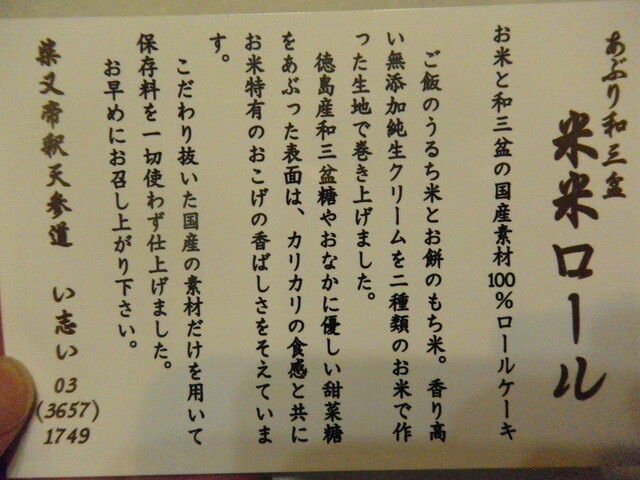 あぶり和三盆
米米ロール
お米と和三盆の国産素材100%ロールケーキ
ご飯のうるち米とお餅のもち米。香り高
い無添加純生クリームを二種類のお米で作
った生地で巻き上げました。
徳島産和三盆糖やおなかに優しい甜菜糖
をあぶった表面は、カリカリの食感と共に
お米特有のおこげの香ばしさをそえていま
す。
こだわり抜いた国産の素材だけを用いて
保存料を一切使わず仕上げました。
お早めにお召し上がり下さい。
柴又帝釈天参道 い志い 03(3657)1749